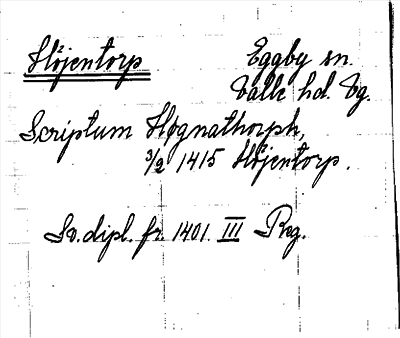 Höjentorp Eggby sn.
Valle hd. Vg.
Scriptum Høgnathorph,
3/2 1415 Höjentorp.
Sv. dipl. fr. 1401. III Reg.